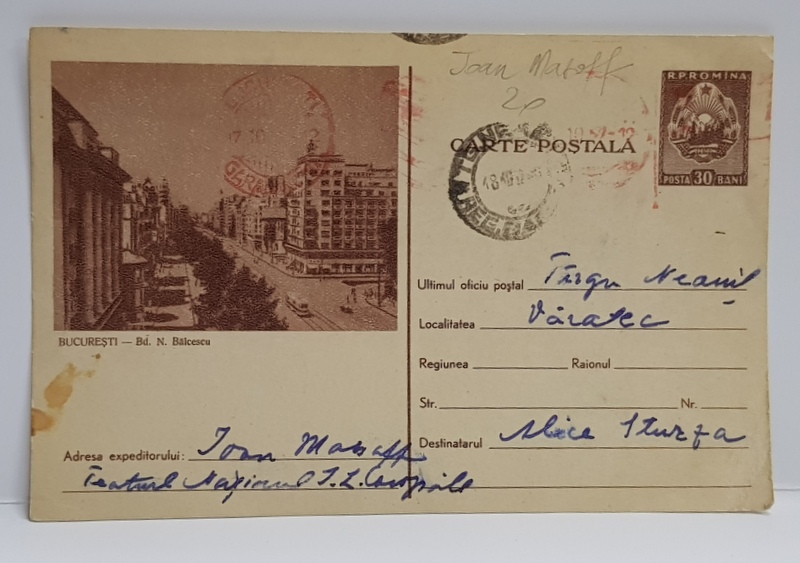 Ioan Masoff
20
R.P.ROMÎNA
CARTE POSTALĂ
POSTA 30 BANI
BUCUREȘTI — Bd. N. Bălcescu
Ultimul oficiu poștal Tîrgu Neamț
Localitatea Văratec
Regiunea Raionul
Str. Nr.
Destinatarul Alice Sturza
Adresa expeditorului: Ioan Masoff
Teatrul Național I. L. Caragiale